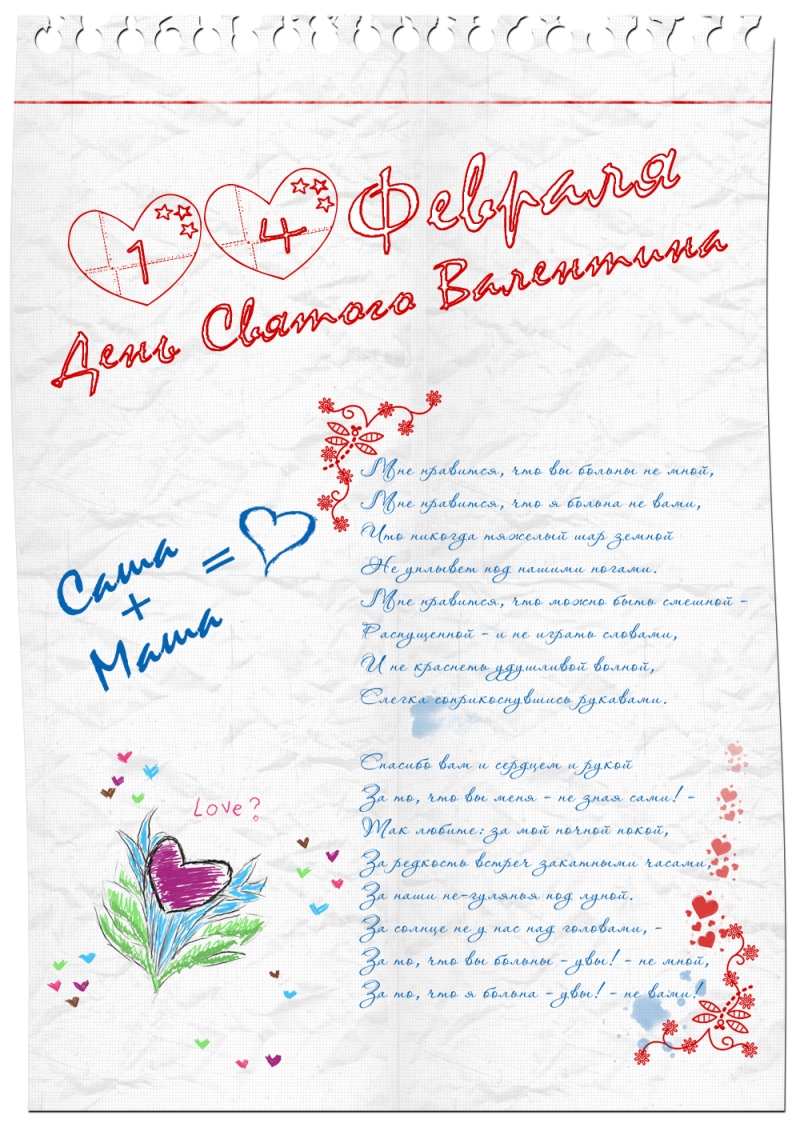 14 Февраля
День Святого Валентина
Мне нравится, что вы больны не мной,
Мне нравится, что я больна не вами,
Что никогда тяжелый шар земной
Не уплывет под нашими ногами.
Мне нравится, что можно быть смешной -
Распущенной - и не играть словами,
И не краснеть удушливой волной,
Слегка соприкоснувшись рукавами.
Саша
+
=
Маша
Love?
Спасибо вам и сердцем и рукой
За то, что вы меня - не зная сами! -
Так любите: за мой ночной покой,
За редкость встреч закатными часами,
За наши не-гулянья под луной.
За солнце не у нас над головами, -
За то, что вы больны - увы! - не мной,
За то, что я больна - увы! - не вами!